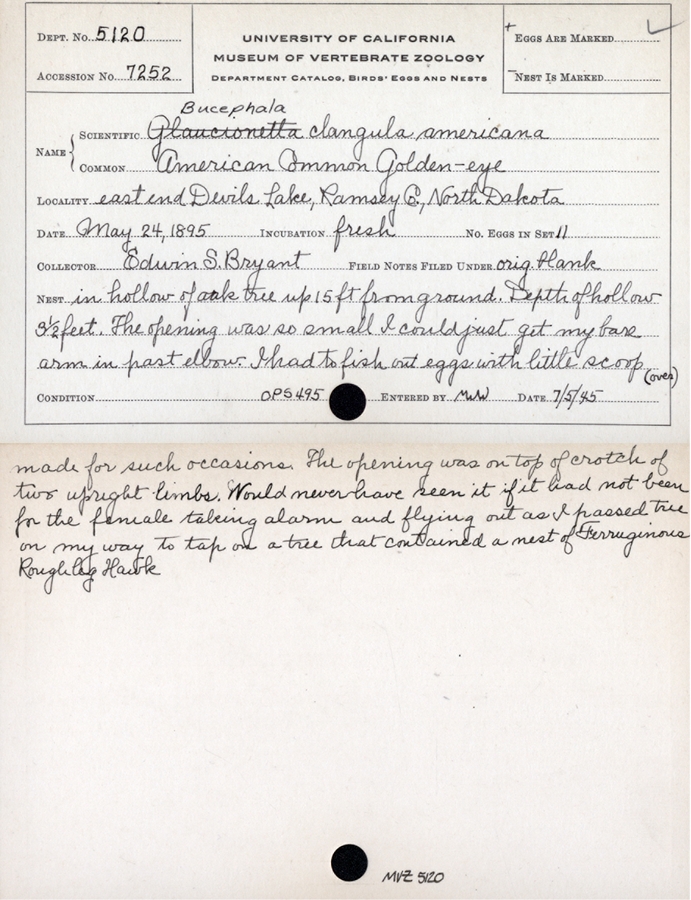 DEPT. No. 5120
UNIVERSITY OF CALIFORNIA
MUSEUM OF VERTEBRATE ZOOLOGY
DEPARTMENT CATALOG, BIRDS' EGGS AND NESTS
+ EGGS ARE MARKED ✓
ACCESSION No. 7252
- NEST IS MARKED
Bucephala
NAME { SCIENTIFIC Glaucionetta clangula americana
COMMON American Common Golden-eye
LOCALITY east end Devils Lake, Ramsey Co., North Dakota
DATE May 24, 1895 INCUBATION fresh No. EGGS IN SET 11
COLLECTOR Edwin S. Bryant FIELD NOTES FILED UNDER orig. blank
NEST in hollow of oak tree up 15 ft from ground. Depth of hollow
3½ feet. The opening was so small I could just get my bare
arm in past elbow. I had to fish out eggs with little scoop
(over)
CONDITION OPS 495 ENTERED BY MWW DATE 7/5/45
made for such occasions. The opening was on top of crotch of
two upright limbs. Would never have seen it if it had not been
for the female taking alarm and flying out as I passed tree
on my way to tap on a tree that contained a nest of Ferruginous
Roughleg Hawk
MVZ 5120